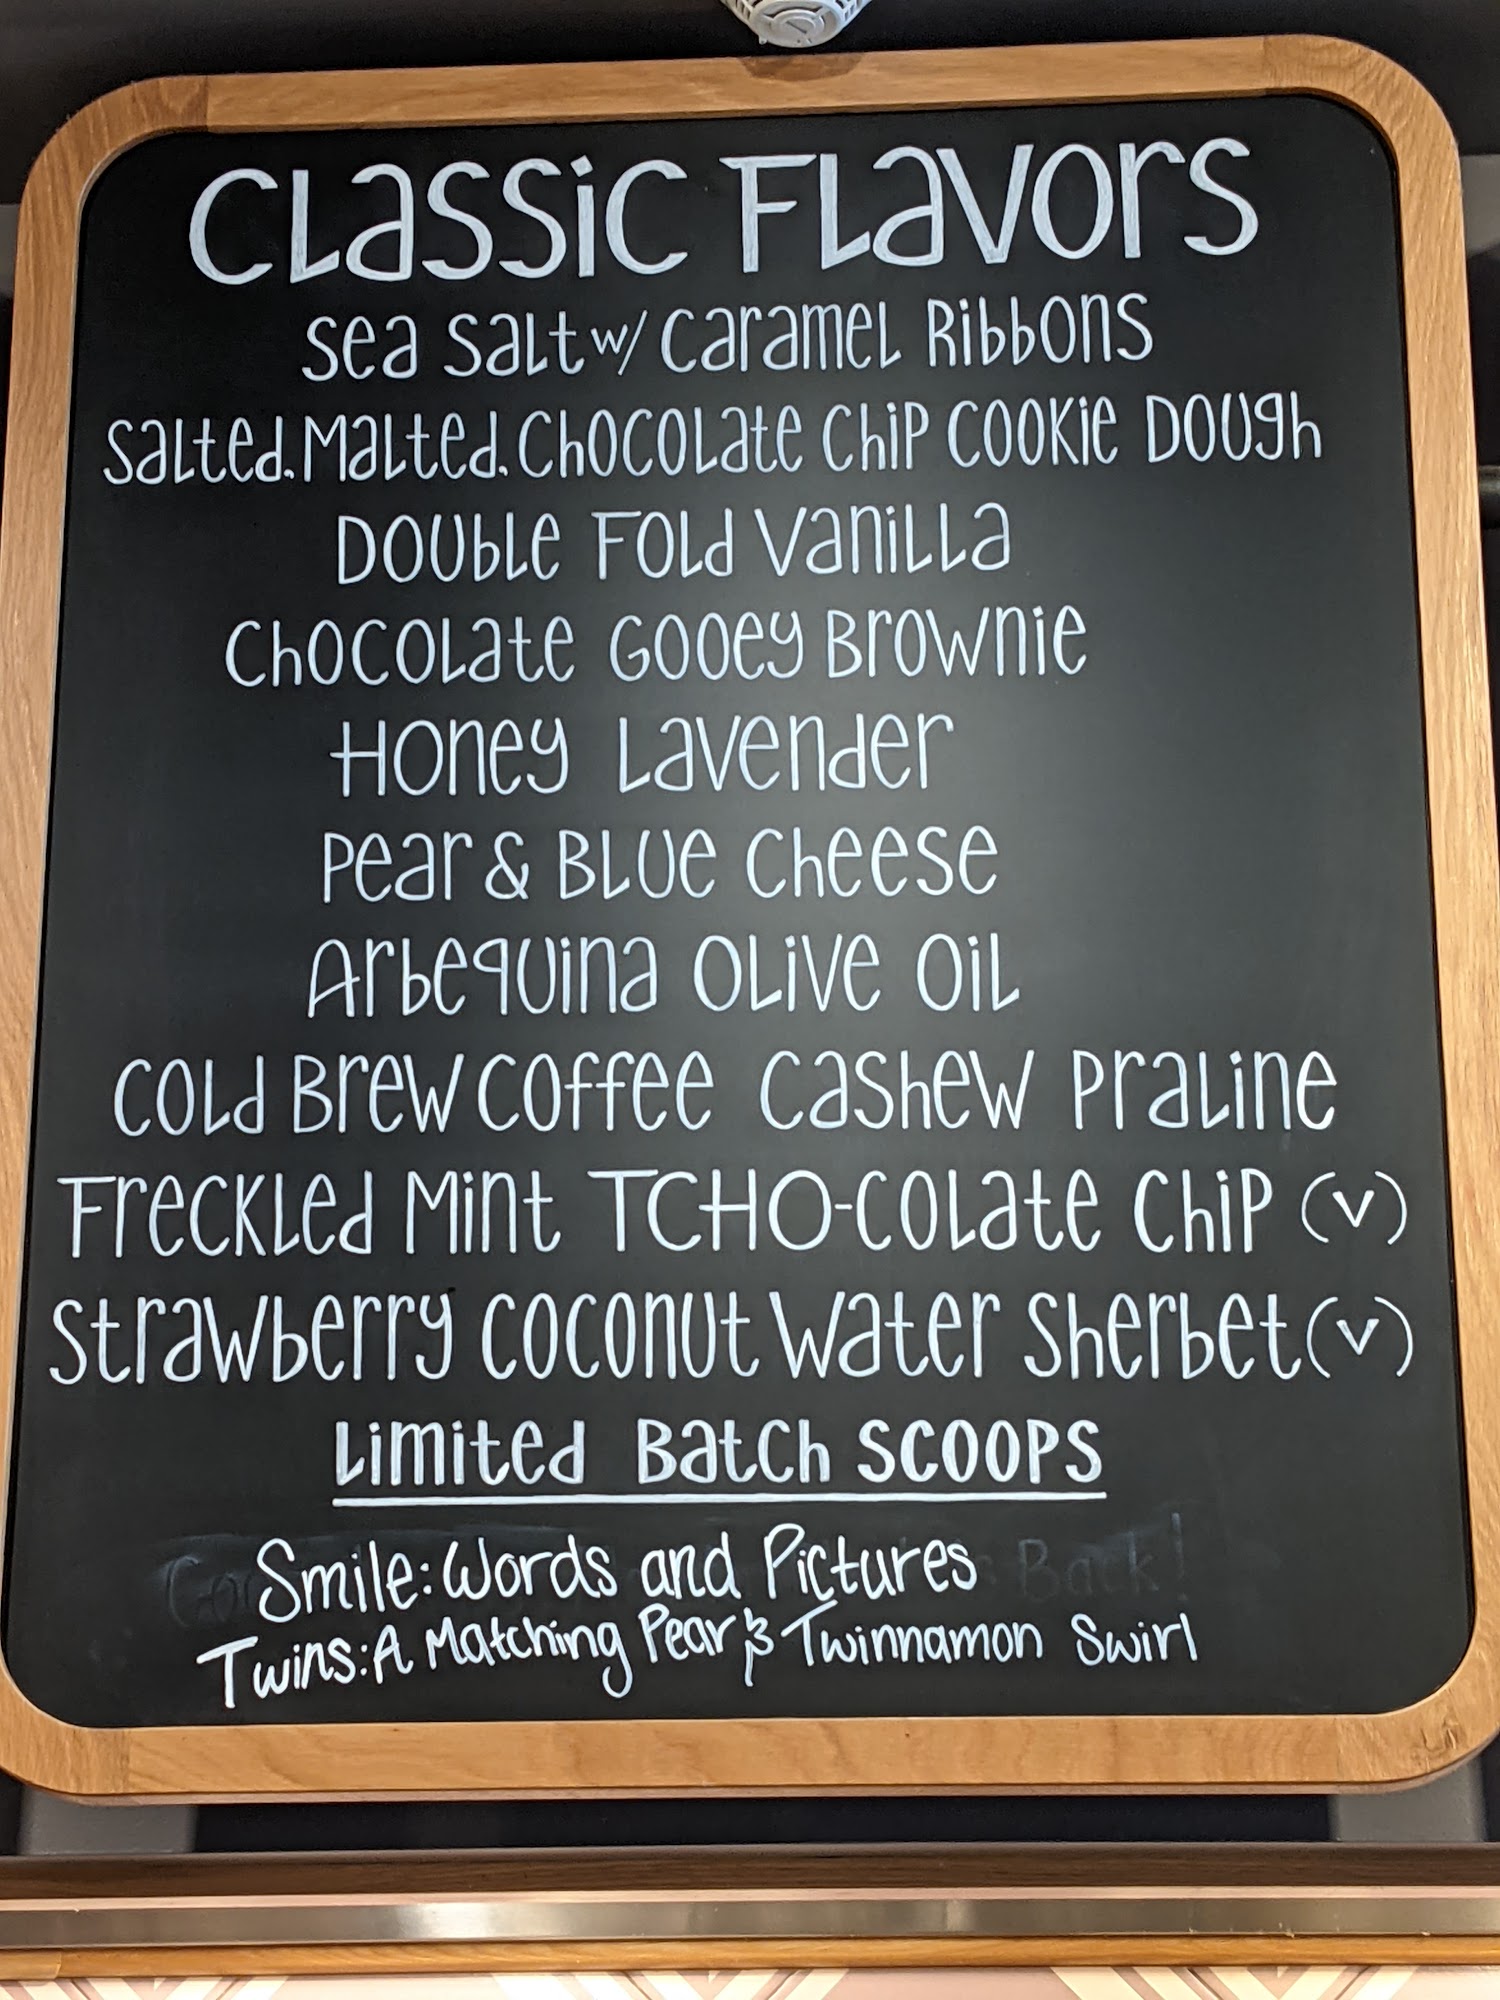 Classic Flavors
Sea Salt w/ Caramel Ribbons
Salted, Malted, Chocolate Chip Cookie Dough
Double Fold Vanilla
Chocolate Gooey Brownie
Honey Lavender
Pear & Blue Cheese
Arbequina Olive Oil
Cold Brew Coffee Cashew Praline
Freckled Mint TCHO-colate Chip (v)
Strawberry Coconut Water Sherbet (v)
Limited Batch SCOOPS
Smile: Words and Pictures
Back!
Twins: A Matching Pear & Twinnamon Swirl